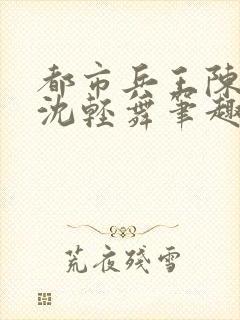 都市兵王陳
沈輕舞筆趣
荒夜殘雪